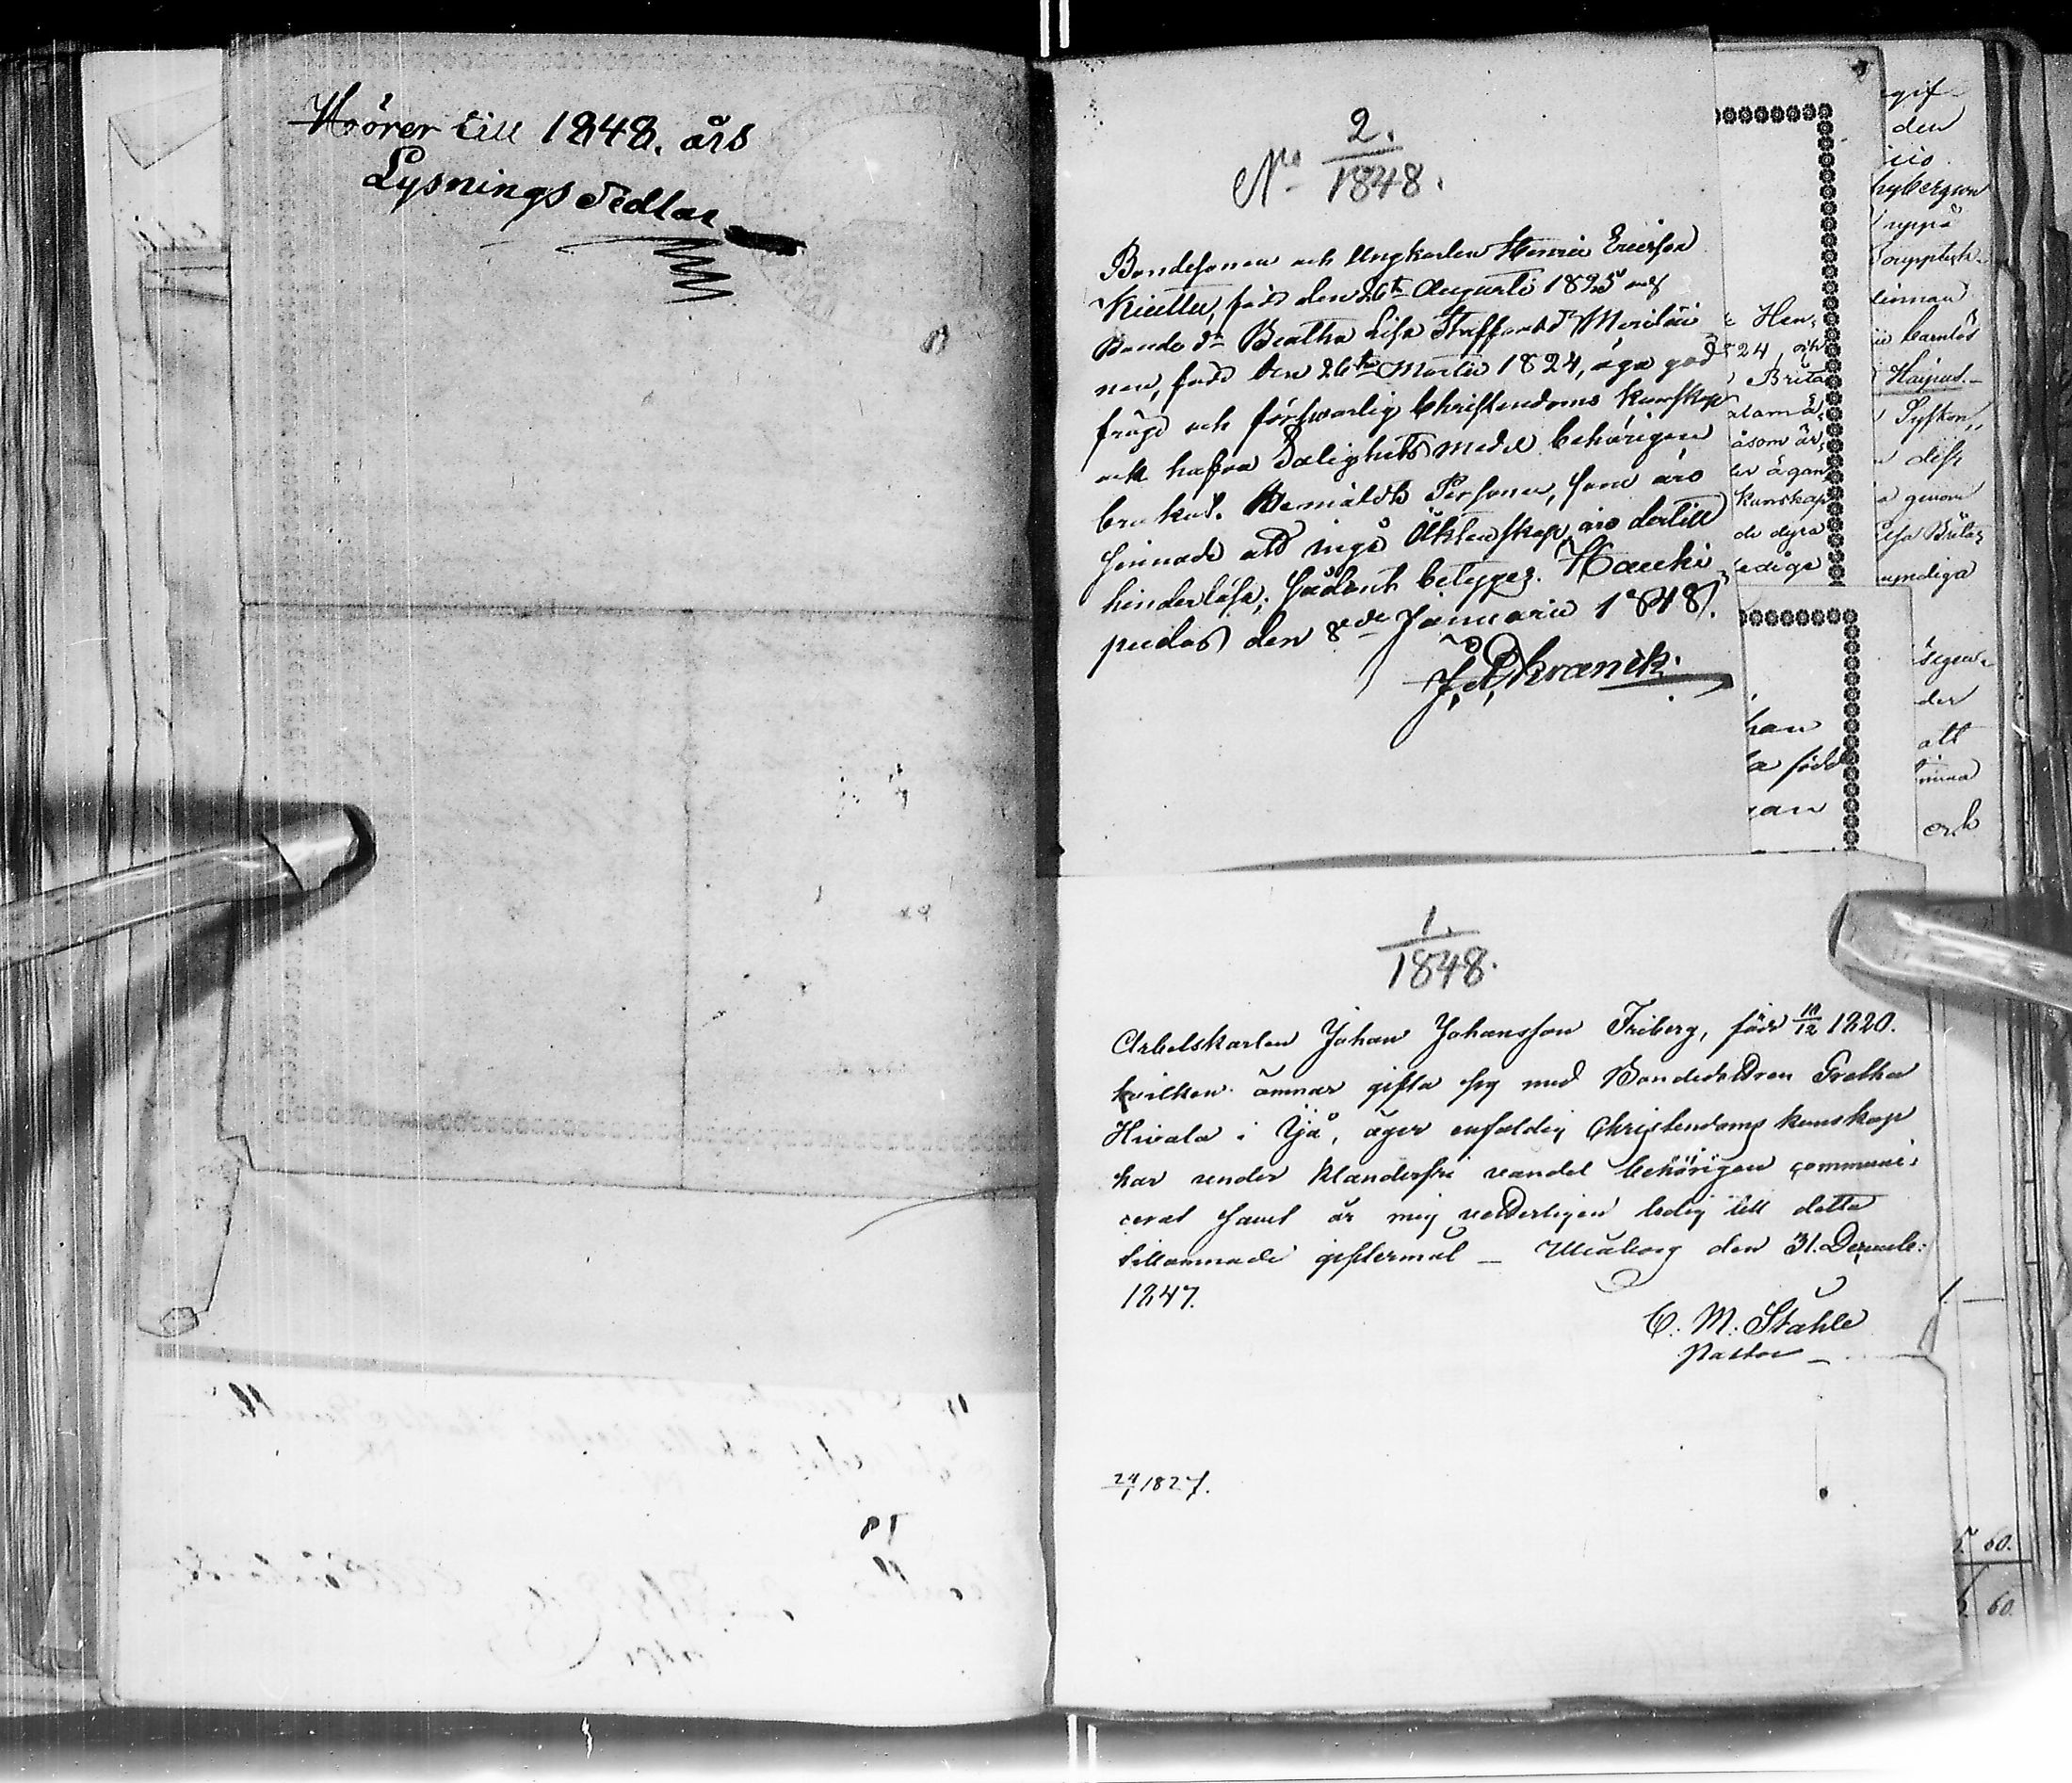 Hörer till 1848. års
Lysnings Sedlar
No 2./1848.
Bondesonen och Ungkarlen Henric Ericsson
född den 26te Augusti 1825 med
Bonde dr Beatha Lisa Staffansdr
nen, född den 26te Martii 1824, äga god
frägd och försvarlig Christendoms kunskap
och hafva Salighets medel behörigen
brukat. Bemäldte Personer, som äro
sinnade att ingå Äktenskap, äro dertill
hinderlöse; sådant betygges. Hauki-
pudas den 8de Januarii 1848.
1./1848.
Arbetskarlen Johan Johansson Friberg, född 10/12 1820.
hvilken ämnar gifta sig med Bondedottren Gretha
Hivala i Ijå, äger enfaldig Christendoms kunskap
har under klanderfri vandel behörigen communi-
cerat samt är mig veterligen ledig till detta
tillämnade giftermål – Uleåborg den 31. Decemb:
1847.
C. M. Ståhle
Pastor
24/1 1827.
gif-
den
Hen-
24, och
Brita
kunskap
de dyra
ledige
han
a född
Syskon,
genom
myndiga
der
att
och
60.
60